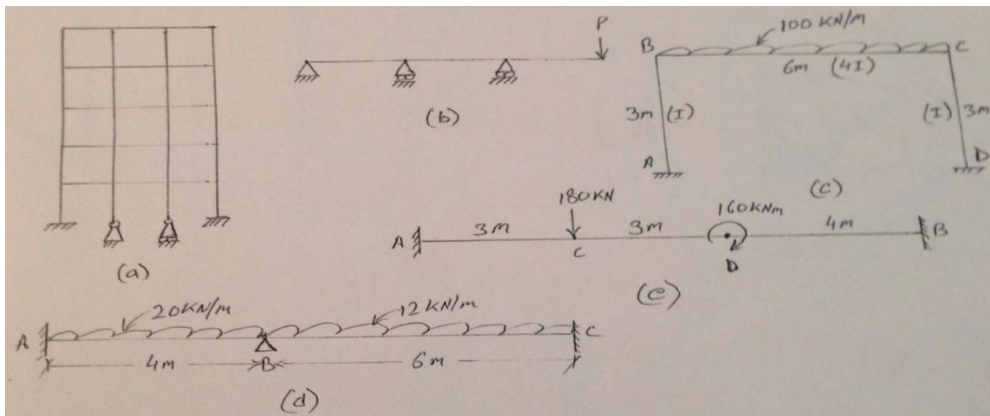 (a)
P
(b)
100 KN/m
B
C
6m (4I)
3m (I)
(I) 3m
A
D
(c)
180KN
160KNm
A
3m
3m
4m
B
C
D
(e)
20KN/m
12KN/m
A
C
4m
B
6m
(d)